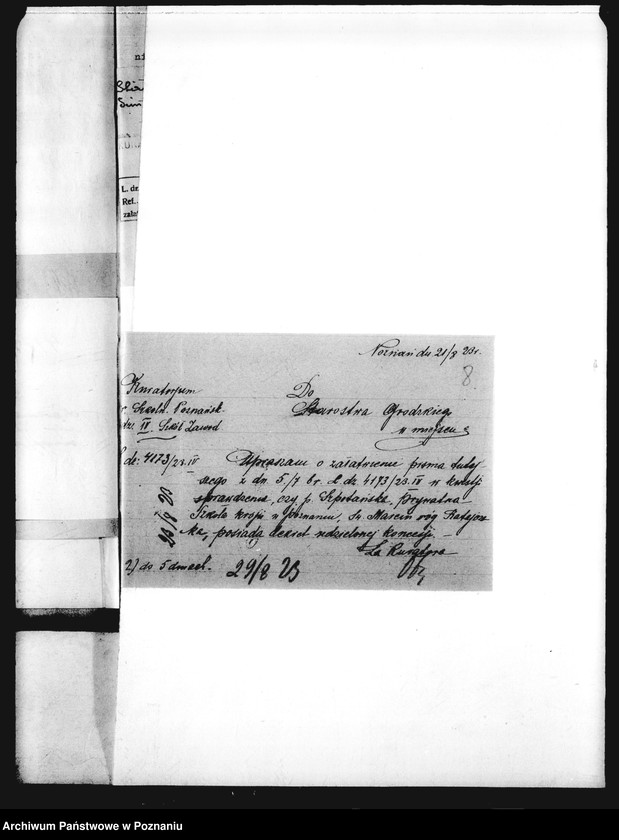 L. dz.
Ref.
załat
Poznań dn. 21/8 23r.
8.
Kuratorjum
Szkoln. Poznańsk.
dz. IV. Szkół Zawod
Do
Starostwa Grodzkieg
w miejscu
L dz: 4173/23.IV
Upraszam o załatwienie pisma tutej
szego z dn. 5/7 br. L. dz 4173/23.IV w kwestji
sprawdzenia, czy p. Szprotańska, prywatna
Szkoła kroju w Poznaniu, Św. Marcin róg Ratajcza
ka, posiada dekret udzielonej koncesji.
Za Kuratora
23/8 23
2) do 5 dniach.
29/8 23
Archiwum Państwowe w Poznaniu